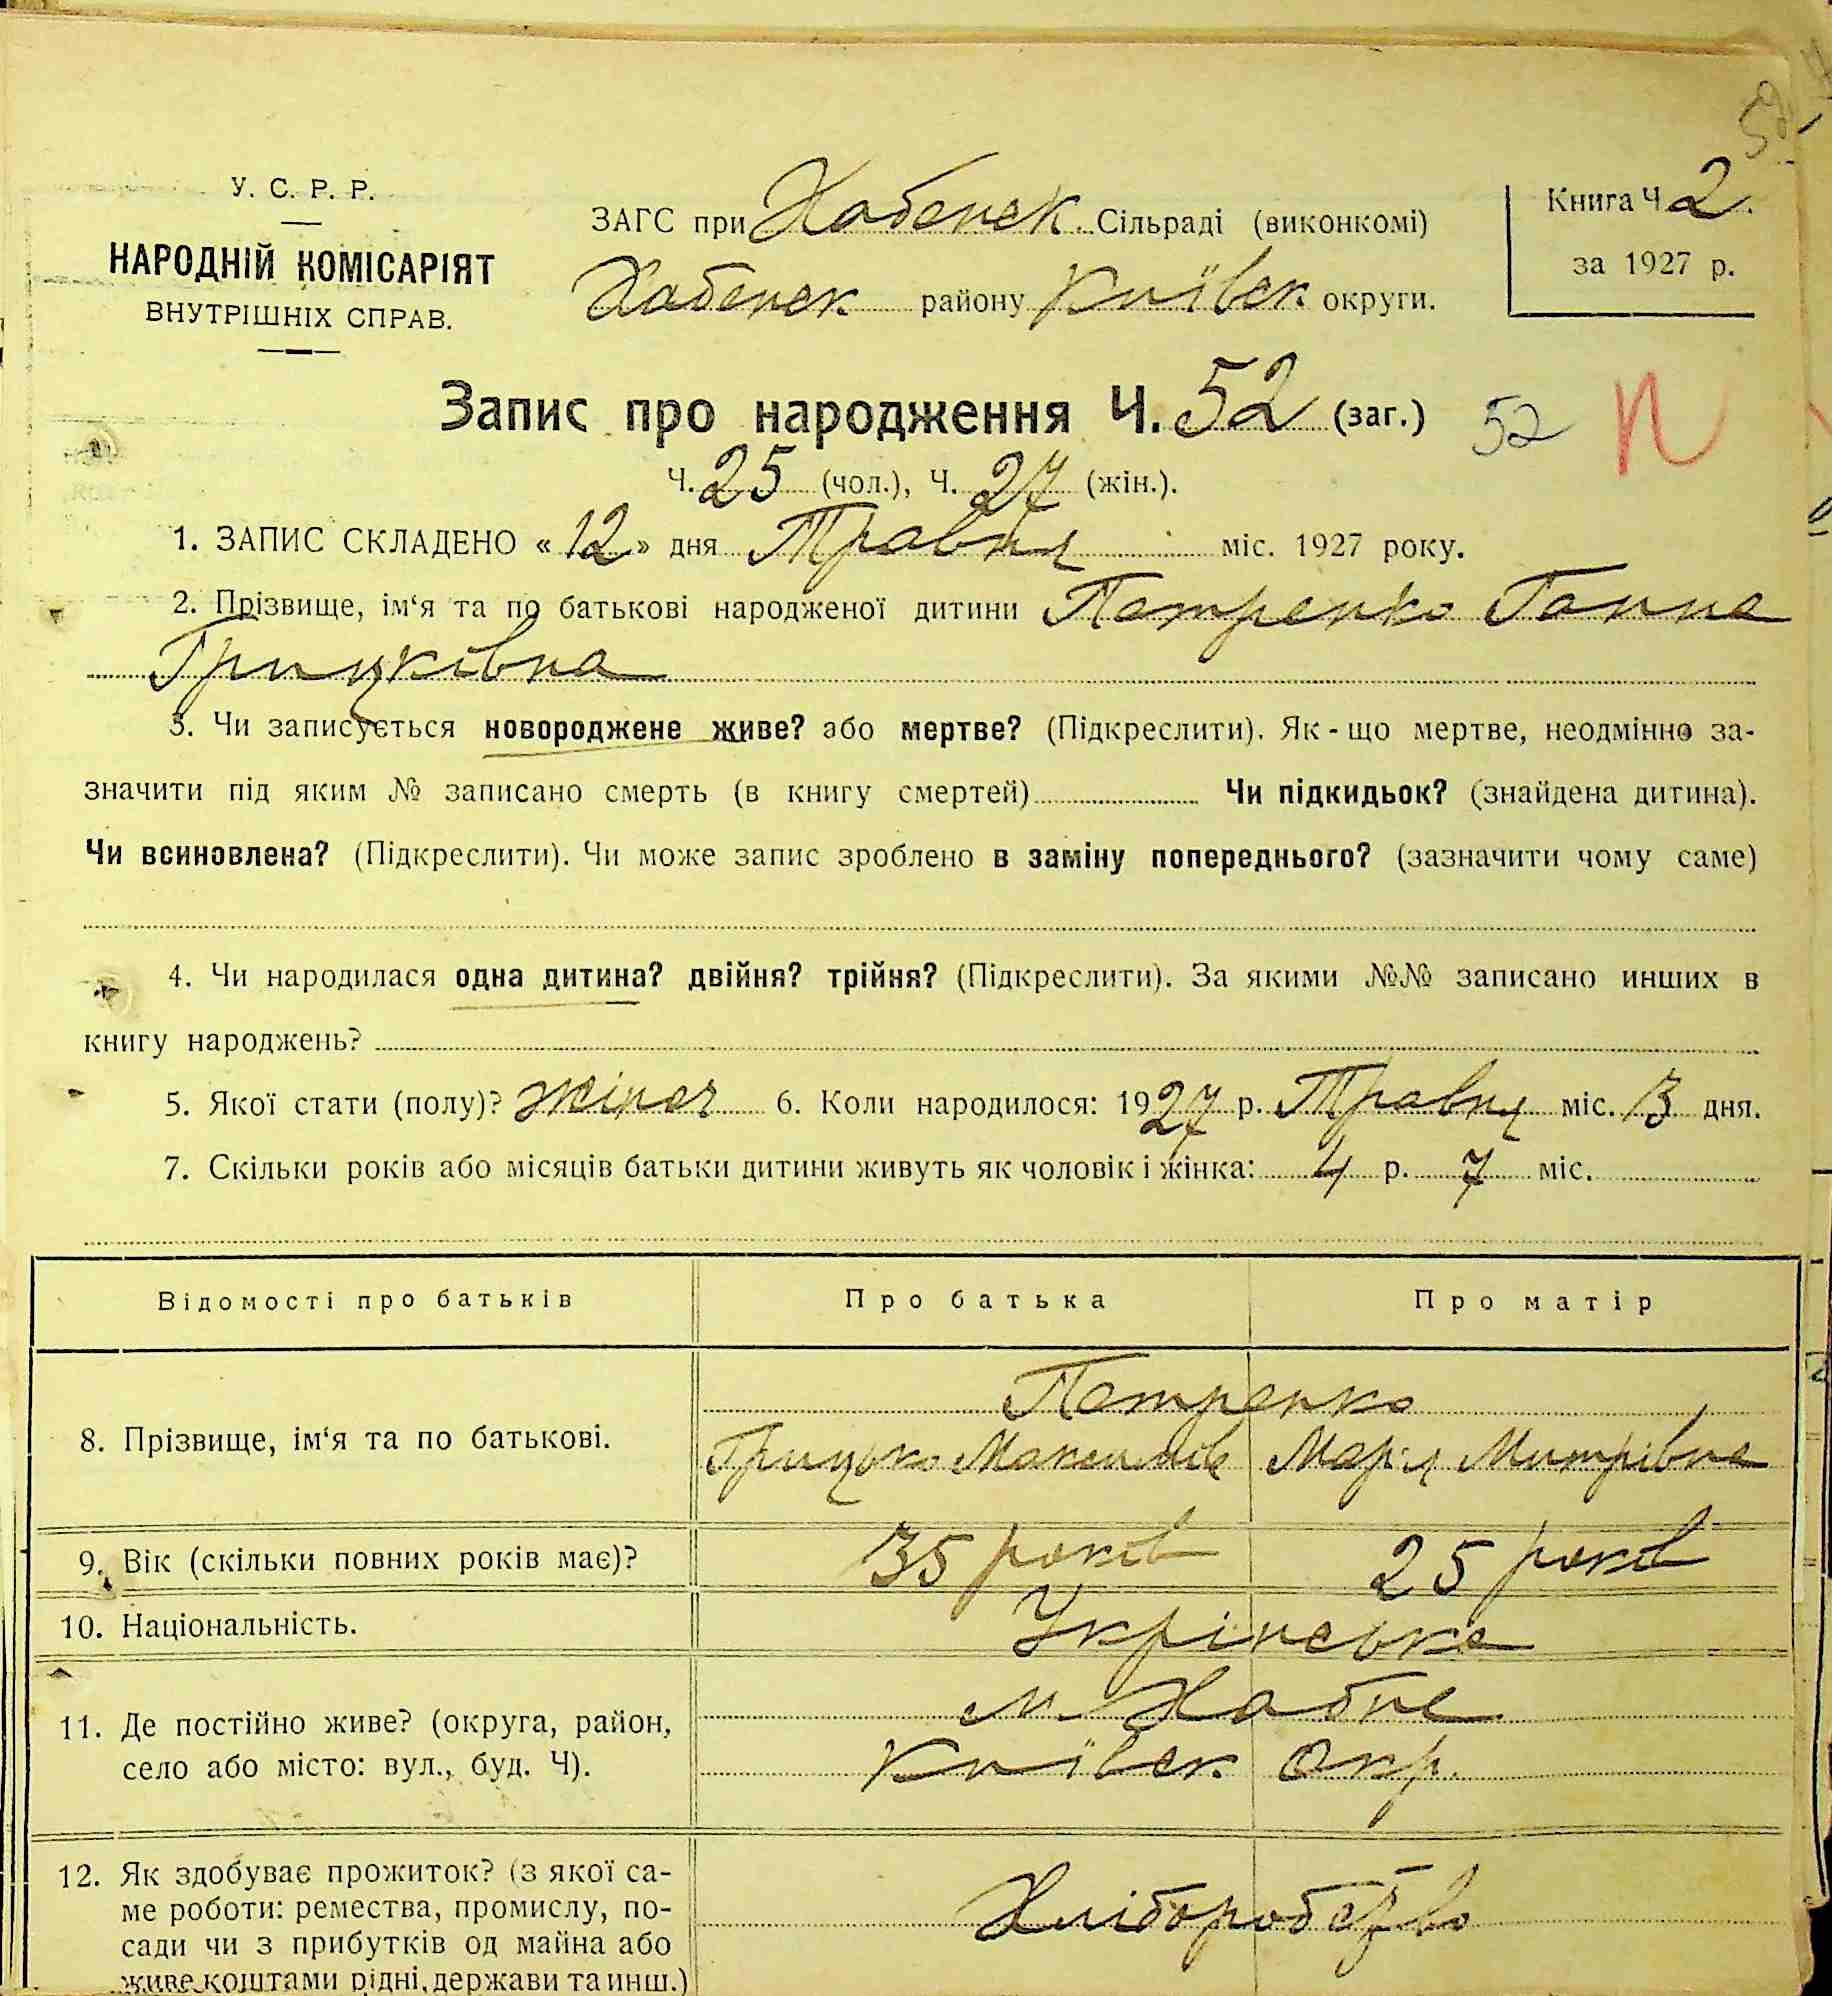 У. С. Р. Р.
НАРОДНІЙ КОМІСАРІЯТ
ВНУТРІШНІХ СПРАВ.
ЗАГС при Хабенск. Сільраді (виконкомі)
Хабенск району Київск. округи.
Книга Ч. 2.
за 1927 р.
Запис про народження Ч. 52 (заг.) 52 П
Ч. 25 (чол.), Ч. 27 (жін.).
1. ЗАПИС СКЛАДЕНО « 12 » дня Травня міс. 1927 року.
2. Прізвище, ім‘я та по батькові народженої дитини Петренко Ганна
Грицківна
3. Чи записується новороджене живе? або мертве? (Підкреслити). Як - що мертве, неодмінно за-
значити під яким № записано смерть (в книгу смертей) Чи підкидьок? (знайдена дитина).
Чи всиновлена? (Підкреслити). Чи може запис зроблено в заміну попереднього? (зазначити чому саме)
4. Чи народилася одна дитина? двійня? трійня? (Підкреслити). За якими №№ записано инших в
книгу народжень?
5. Якої стати (полу)? жіноч 6. Коли народилося: 1927 р. Травня міс. 3 дня.
7. Скільки років або місяців батьки дитини живуть як чоловік і жінка: 4 р. 7 міс.
Відомості про батьків Про батька Про матір
Петренко
8. Прізвище, ім‘я та по батькові. Грицько Максимів Марія Митрівна
9. Вік (скільки повних років має)? 35 років 25 років
10. Національність. Укрінська
м. Хабне
11. Де постійно живе? (округа, район,
село або місто: вул., буд. Ч). Київск. окр.
12. Як здобуває прожиток? (з якої са-
ме роботи: ремества, промислу, по- Хліборобство
сади чи з прибутків од майна або
живе коштами рідні, держави та инш.)